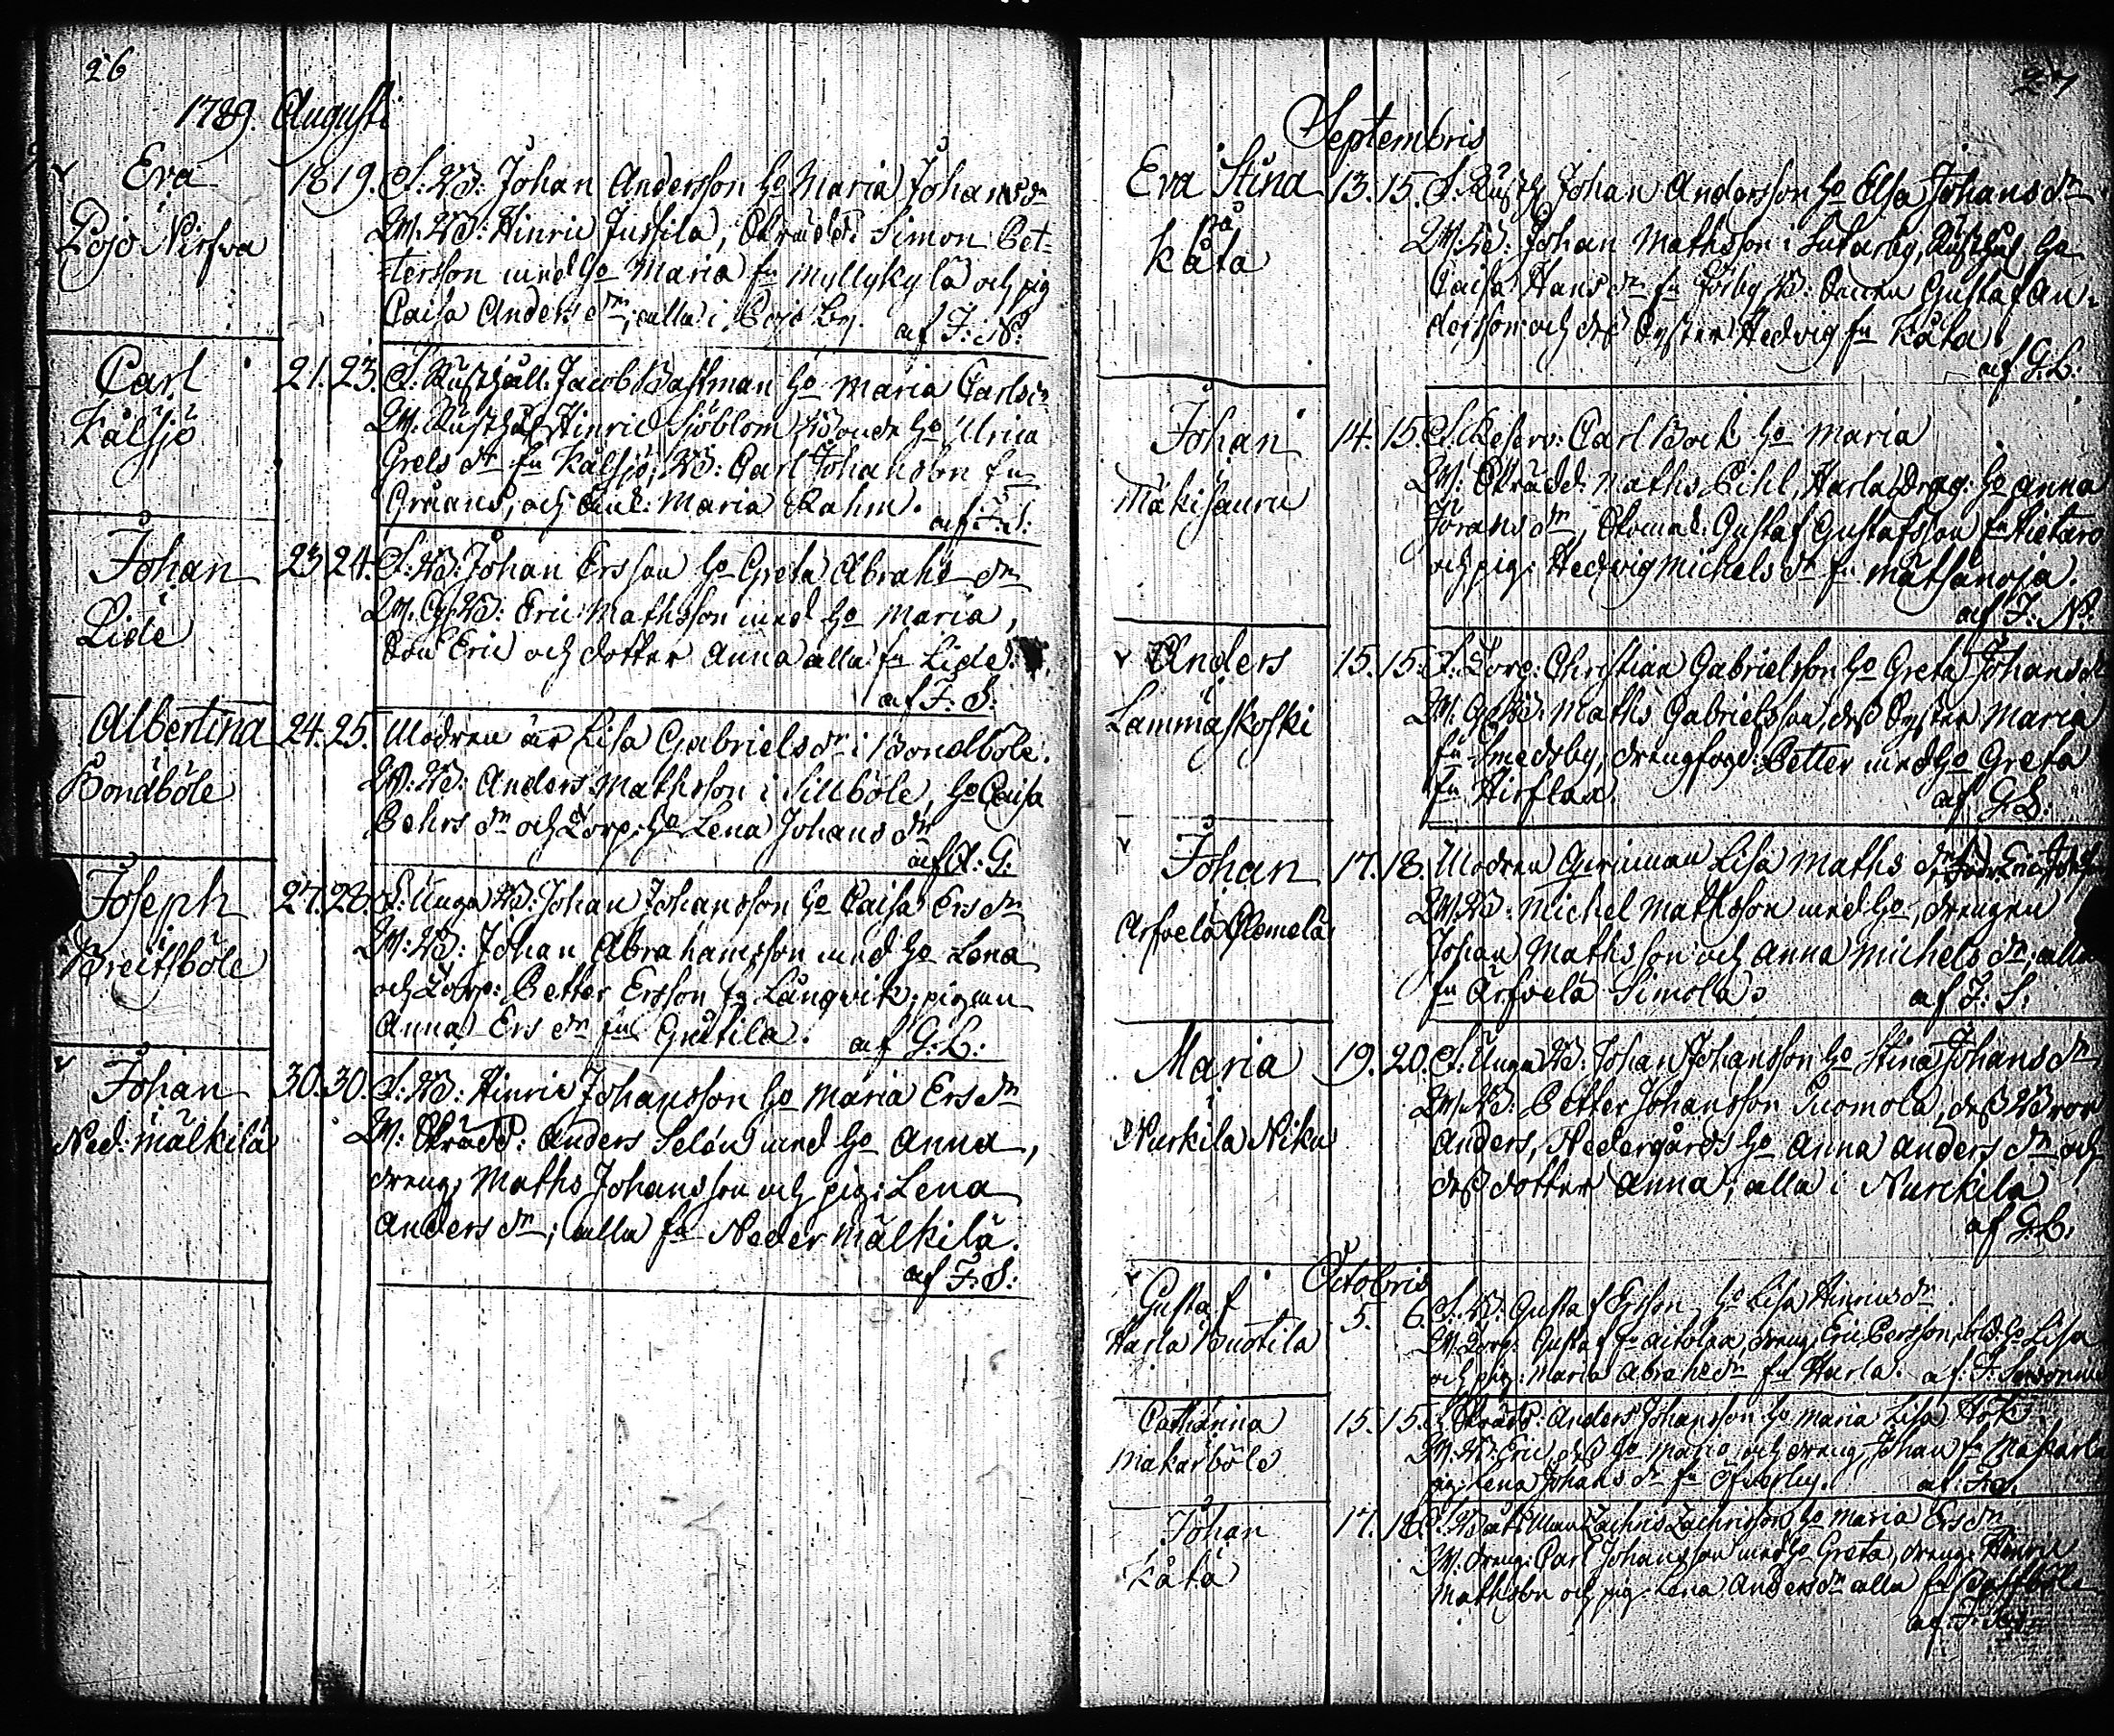 26
1789. Augusti
Eva
Pojo Nirfva
18 19. F. Bd: Johan Andersson ho Maria Johans dr
W. Bd: Hinric Jussila, Skrädd: Simon Pet-
tersson med ho Maria fn Myllykylä och pig
Caisa Anders dr; alla i Pojo By. af F: N:
Carl
Kålsjö
21. 23. F. Rusthåll. Jacob Bastman ho Maria Carls dr
W. Rusthåll Hinric Sjöblom ho Ulrica
Grels dr fn Kålsjö, Bd: Carl Johansson fn
och Maria Rahm. af F. S:
Johan
Lide
23 24. F: Bd: Johan Ersson ho Greta Abrahs dr
W. Bd: Eric Mathsson med ho Maria,
Son Eric och dotter Anna alla fn Lide.
af F: S:
Albertina
Bondböle
24. 25. Modren är Lisa Gabriels dr i Bondböle.
W: Bd: Anders Mathsson i Sillböle, ho Caisa
Pehrs dr och Torp: ho Lena Johans dr
af A: G:
Joseph
Breitsböle
27. 28. F: Unga Bd: Johan Johansson ho Caisa Ers dr
W: Bd: Johan Abrahamsson med ho Lena
och Torp: Petter Ersson fn Långvik; pigan
Anna Ers dr fn Gretila. af G: L:
Johan
Ned: Mälkilä
30. 30. F: Bd: Hinric Johansson ho Maria Ers dr
W: Skrädd: Anders Selön med ho Anna,
dreng: Maths Johansson och pig: Lena
Anders dr; alla fn Neder Mälkilä.
af F: S:
27
Septembris
Eva Stina
på
Kåta
13. 15. F. Rusth: Johan Andersson ho Elsa Johans dr
W. Bd: Johan Mathsson i Rusthåll: ho
Caisa Hans dr fn Förby Bd: Gustaf An-
dersson och dess Syster Hedvig fn Kåta.
af G. L:
Johan
Mäkisauru
14. 15. F. Reserv: Carl Bock ho Maria
W: Skrädd: Maths Pihl, Harla Drag: ho Anna
Jörans dr, Skomak: Gustaf Gustafsson fn
och pig: Hedvig Michels dr fn Mätsänoja.
af F: N:
Anders
Lammaskoski
15. 15. F. Torp: Christian Gabrielsson ho Greta Johans dr
W. Bd: Maths Gabrielsson, dess Syster Maria
fn Smedsby, drengfogd: Petter med ho Greta
fn Hirslax. af G: L:
Johan
Arfvela Clemelä
17. 18. Modren Qvinnan Lisa Maths dr
W. Bd: Michel Mathsson med ho, drengen
Johan Mathsson och Anna Michels dr; alla
fn Arfvela Simola. af F: S:
Maria
Nurkila Niku
19. 20. F: Unga Bd: Johan Johansson ho Stina Johans dr
W. Bd: Petter Johansson Tuomola, dess Bror
Anders, Nedergårds ho Anna Anders dr och
dess dotter Anna, alla i Nurckila
af G: L:
Octobris
Gustaf
Harla Knotila
5. 6. F. Bd: Gustaf Ersson, ho Lisa Hinrics dr
W. Torp: Gustaf fn Aitolax, dreng Eric Persson, ho Lisa
och pig: Maria Abrahs dr fn Harla. af: F:
Catharina
Makarböle
15. 15. F. Skrädd: Anders Johansson ho Maria Lisa Hök
W. Bd: Eric dess ho Maria och dreng Johan fn Makarla
pig: Lena Johans dr fn Österby. af: F: S.
Johan
Kåta
17. 18. F. Zachris Zachrisson ho Maria Ers dr
W. dreng: Carl Johansson med ho Greta, dreng: Hinric
Mathsson och pig: Lena Anders dr alla fn
af: F: